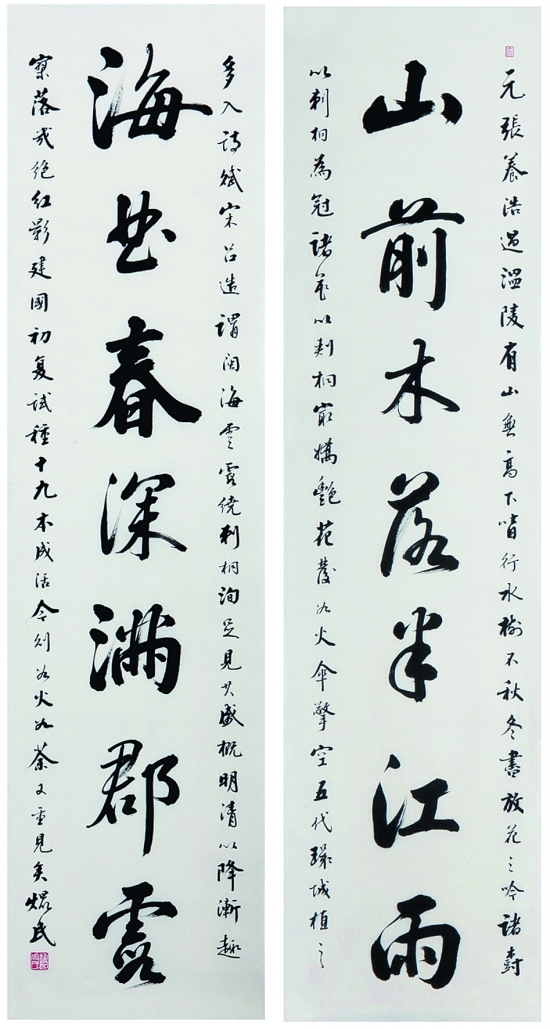 元張養浩過溫陵有山無高下皆行水樹不秋冬盡放花之吟諸樹
山前木落半江雨
以刺桐為冠諸花以刺桐最嬌艷花發如火傘擎空五代環城植之
多入詩賦宋呂造謂閩海雲霞繞刺桐洵足見其盛概明清以降漸趨
海曲春深滿郡霞
寥落或絕紅影建國初复試種十九本成活今則如火如荼又重見矣焜民